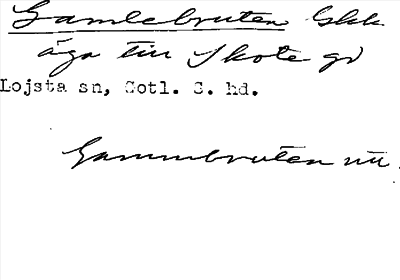 Gamlebruten Gkk.
äga till Skote gd
Lojsta sn, Gotl. S. hd.
Gammbruten